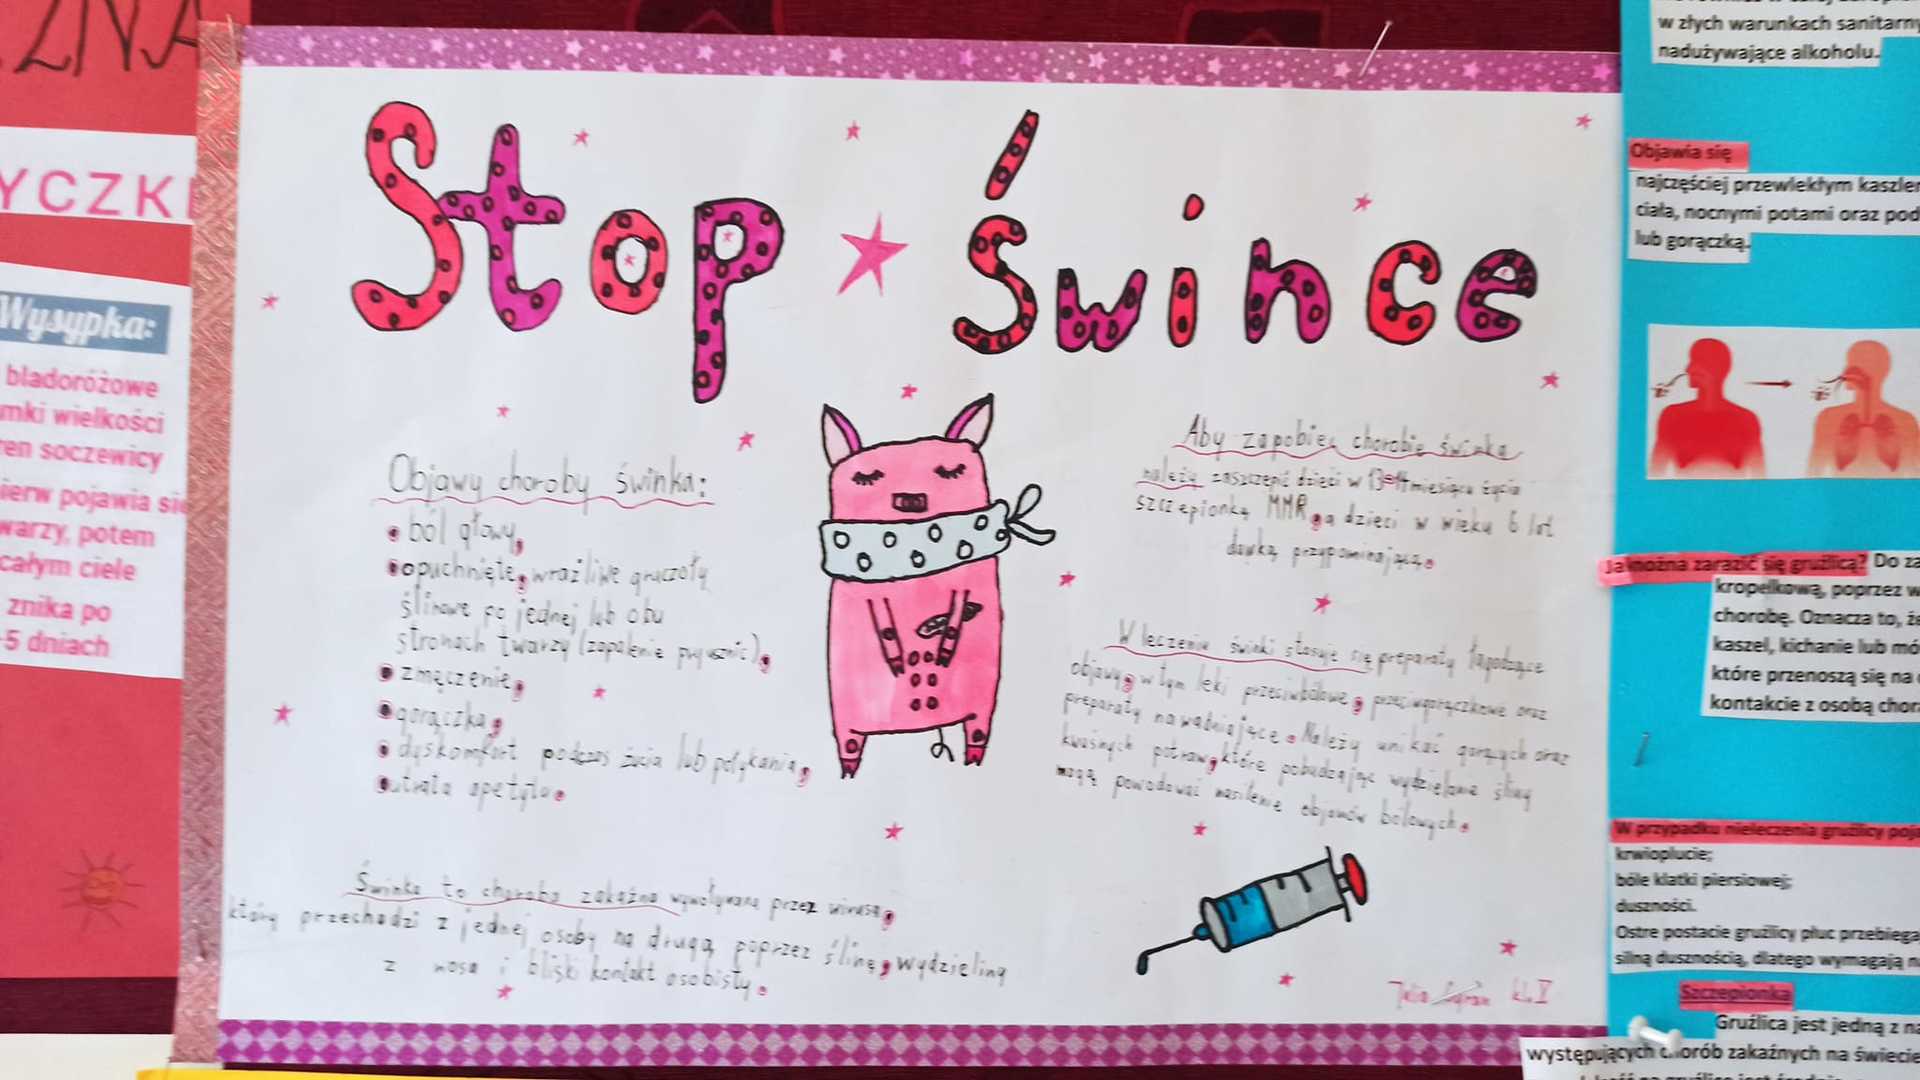 ZNA
YCZKI
Wysypka:
bladoróżowe
mki wielkości
ren soczewicy
ierw pojawia się
warzy, potem
całym ciele
znika po
5 dniach
Stop śwince
Objawy choroby świnka:
ból głowy,
opuchnięte, wrażliwe gruczoły
ślinowe po jednej lub obu
stronach twarzy (zapalenie przyusznic),
zmęczenie,
gorączka,
dyskomfort podczas żucia lub połykania,
utrata apetytu.
Świnka to choroba zakaźna wywoływana przez wirusa,
który przechodzi z jednej osoby na drugą poprzez ślinę, wydzieliny
z nosa i bliski kontakt osobisty.
Aby zapobiec chorobie świnka
należy zaszczepić dzieci w 13-14 miesiącu życia
szczepionką MMR, a dzieci w wieku 6 lat
dawką przypominającą.
W leczeniu świnki stosuje się preparaty łagodzące
objawy, w tym leki przeciwbólowe, przeciwgorączkowe oraz
preparaty nawadniające. Należy unikać gorących oraz
kwaśnych potraw, które pobudzając wydzielanie śliny
mogą powodować nasilenie objawów bólowych.
kl. V
w złych warunkach sanitarny
nadużywające alkoholu.
Objawia się
najczęściej przewlekłym kaszlem
ciała, nocnymi potami oraz pod
lub gorączką.
Jak można zarazić się gruźlicą? Do za
kropelkową, poprzez w
chorobę. Oznacza to, że
kaszel, kichanie lub mó
które przenoszą się na
kontakcie z osobą chor
W przypadku nieleczenia gruźlicy poja
krwioplucie;
bóle klatki piersiowej;
duszności.
Ostre postacie gruźlicy płuc przebiega
silną dusznością, dlatego wymagają n
Szczepionka
Gruźlica jest jedną z na
występujących chorób zakaźnych na świecie